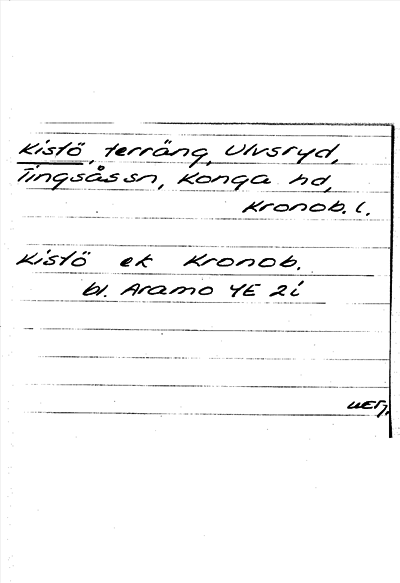 Kistö, terräng, Ulvsryd,
Tingsås sn, Konga hd,
Kronob. l.
Kistö ek Kronob.
bl. Aramo 4E 2i